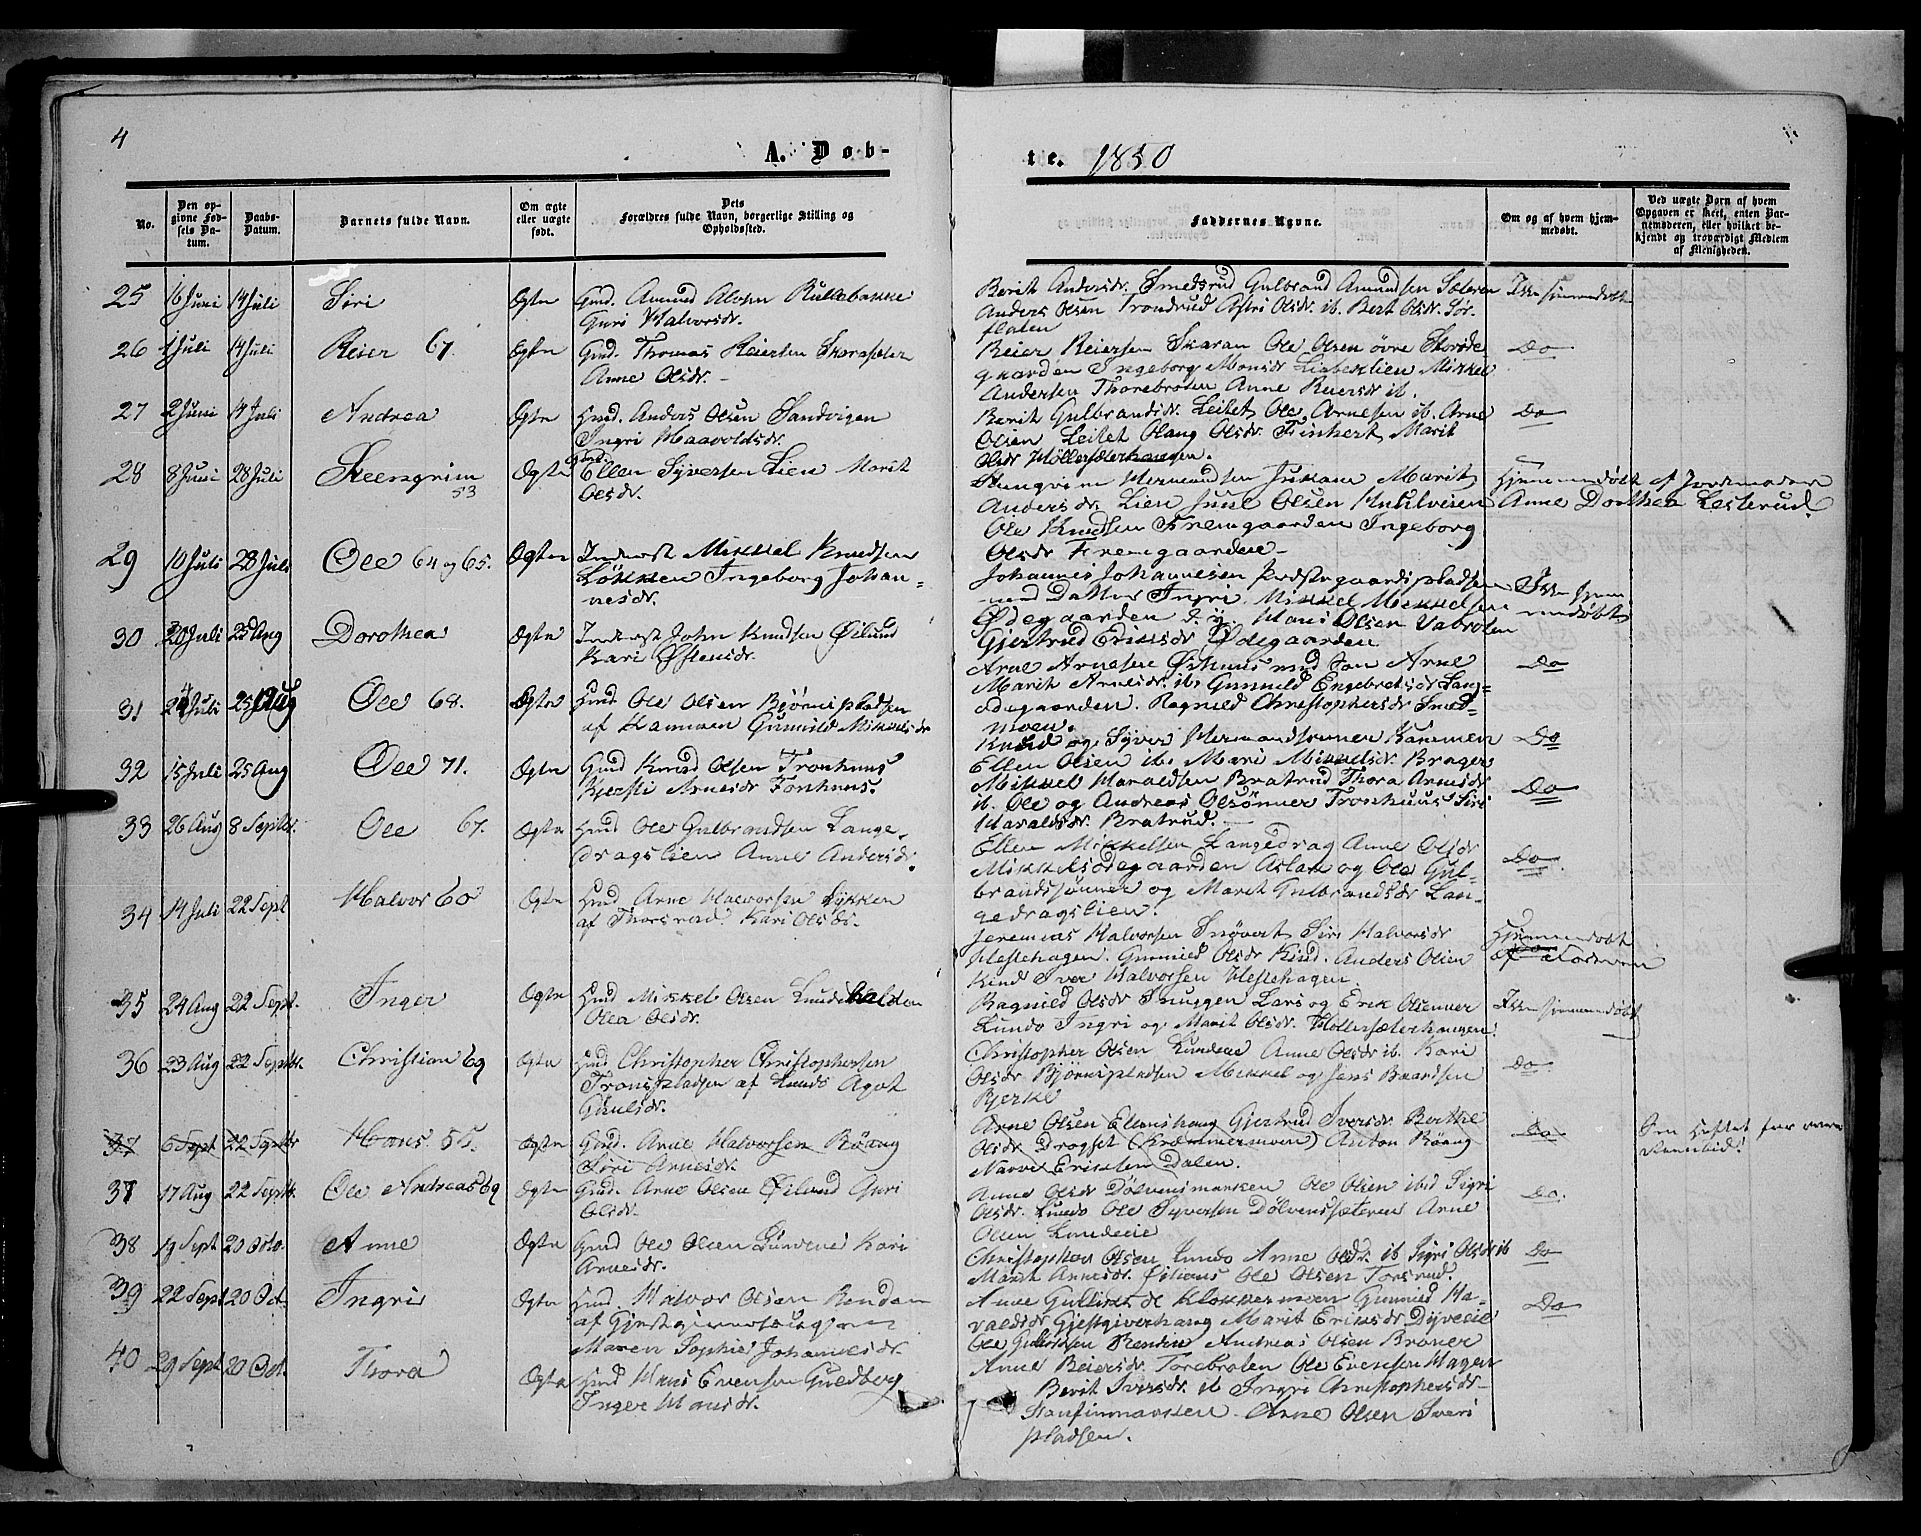 4
A. Døb-
te. 1850
No.
Den op-
givne Fød-
sels Da-
tum.
Daabs-
Datum.
Barnets fulde Navn.
Om ægte
eller uægte
født.
Dets
Forældres fulde Navn, borgerlige Stilling og
Opholdssted.
Faddernes Navne.
Om og af hvem hjem-
medøbt.
Ved uægte Børn af hvem
Opgaven er skeet, enten Bar-
nemoderen, eller hvilket be-
kjendt og troværdigt Medlem
af Menigheden.
25 16 Juni 14 Juli Siri Ægte Gmd. Amund Alvsen Rullebakke
Guri Halvorsdr.
Berit Andersdr. Smedsrud Gulbrand Amundsen Sæteren
Anders Olsen Trondrud Astri Olsdr. ib. Bert Olsdr. Sør-
flaten
26 1 Juli 14 Juli Reier 67. Ægte Gmd. Thomas Reiersen
Anne Olsdr.
Reier Reiersen Skaran Ole Olsen øvre
gaarden Ingeborg Monsdr. Mikkel
Andersen Thorebroten Anne Reiersdr ib.
Do
27 2 Juni 14 Juli Andrea Ægte Hmd. Anders Olsen Sandvigen
Ingri Haavoldsdr.
Berit Gulbrandsdr. Leitet Ole Arnesen ib. Arne
Olsen Leitet Olaug Olsdr. Finhert, Marit
Olsdr Høllersæterhaugen.
Do
28 8 Juni 28 Juli Steengrim
53 Ægte Ellen Syversen Lien Marit
Olsdr.
Steengrim Hermundsen Juvkam Marit
Andersdr. Lien Juul Olsen
Ole Knudsen Fremgaarden Ingeborg
Olsdr Fremgaarden
Hjemmedøbt af Jordemoder
Anne Dorthea Lesterud.
29 10 Juli 28 Juli Ole 64 og 65. Ægte Inderst Mikkel Knudsen
Løkken Ingeborg Johan-
nesdr.
Johannes Johannesen Prestegaardspladsen
med Datter Ingri. Mikkel Mikkelsen
Ødegaarden d. y. Hans Olsen Vabroten
Gjertrud Eriksdr Ødegaarden
30 20 Juli 25 Aug Dorothea Ægte Inderst John Knudsen Øilund
Kari Østensdr.
Arne Arnesen Øihuus med Søn Arne
Marit Arnesdr. ib. Gunnild Engebretsdr Lang-
ødegaarden. Ragnild Christophersdr Smed-
moen.
Do
31 24 Juli 25 Aug Ole 68. Ægte Hmd Ole Olsen Bjørnepladsen
af Kammen Gunnild Mikkelsdr
Knud og Syver Hermandsønner Kammen
Ellen Olsen ib. Mari Mikkelsdr. Brager
Do
32 15 Juli 25 Aug Ole 71. Ægte Gmd Knud Olsen Tronhuus
Kjersti Arnesdr Tonhuus.
Mikkel Haraldsen Bratrud Thora Arnesdr
ib. Ole og Andreas Olsønner Tronhuus Siri
Haraldsdr. Bratrud.
Do
33 26 Aug 8 Septbr. Ole 67. Ægte Hmd Ole Gulbrandsen Lange-
dragslien Anne Andersdr.
Ellen Mikkelsen Langedrag Anne Olsdr
Mikkelsødegaarden Aslak og Ole Gul-
brandssønner og Marit Gulbrandsdr Lan-
gedragslien.
Do
34 14 Juli 22 Sept Halvor 60 Ægte Hmd Arne Halvorsen Lykken
af Thorsrud. Kari Olsdr.
Jeremias Halvorsen Snøvert Siri Halvorsdr
Hestehagen. Gunnild Olsdr Kind. Anders Olsen
Kind Iver Halvorsen Hestehagen.
Hjemmedøbt
35 24 Aug 22 Sept. Inger Ægte Hmd Mikkel Olsen Lundehalden
Olea Olsdr.
Ragnild Olsdr Snuggen Lars og Erik Olsønner
Lundo Ingri og Marit Olsdr. Høllersæterhaugen.
Ikke hjemmedøbt
36 23 Aug 22 Septbr. Christian 69 Ægte Hmd Christopher Christophersen
Tronspladsen af Lundo Agot
Gauldsdr.
Christopher Olsen Lundene Anne Olsdr ib. Kari
Olsdr Bjørnspladsen Mikkel og Jens Baardsen
Bjerke
Do
37 6 Sept 22 Septbr Hans 55. Ægte Gmd. Arne Halvorsen Røang
Siri Arnesdr.
Arne Olsen Elenshaug Gjertrud Iversdr Berthe
Olsdr Dragset (Kræmmermoen) Anton Røang
Narve Eriksen Dalen.
Do
37 17 Aug 22 Septb. Ole Andreas 69 Ægte Gmd. Arne Olsen Øilund Guri
Olsdr.
Anne Olsdr Dølvensmarken Ole Olsen ibid Sigri
Olsdr. Lundo Ole Syversen Dølvensæteren Arne
Olsen Lundene
Do.
38 19 Sept 20 Octo. Anne Ægte Gmd Ole Olsen Lundene Kari
Arnesdr.
Christopher Olsen Lundo Anne Olsdr. ib Sigri Olsdr ib
Marit Arnesdr. Øihuus Ole Olsen Torsrud.
Do
39 22 Sept 20 Oct. Ingri Ægte Hmd. Halvor Olsen Renden
af Gjestgiver
Maren Sophie Johannesdr.
Anne Klokkermoen Gunnild Ha-
valdsdr Gjestgiverhaug Marit Eriksdr Dyvelie
Ole Renden Andreas Olsen Broner
Do
40 29 Sept 20 Oct. Thora Ægte Hmd Hans Evensen Guldberg
Inger Hansdr.
Anne Reiersdr. Torebroten Ole Evensen Hagen
Berit Iversdr. ib Ingri Christophersdr
Arne Olsen
pladsen.